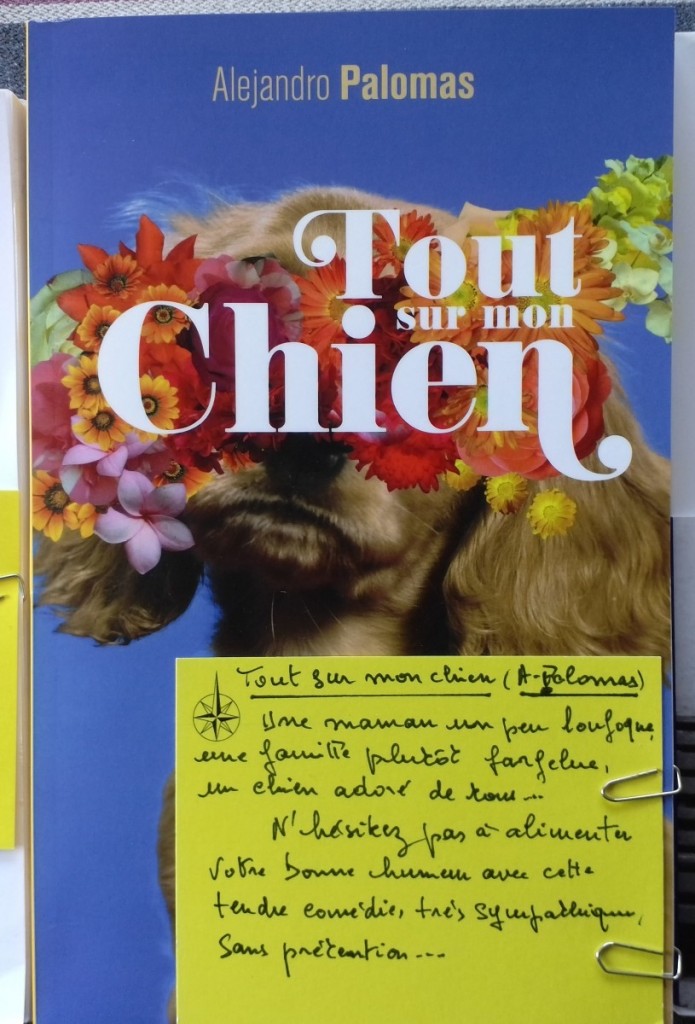 Alejandro Palomas
Tout
sur mon
Chien
Tout sur mon chien (A. Palomas)
Une maman un peu loufoque,
une famille plutôt farfelue,
un chien adoré de tous...
N'hésitez pas à alimenter
votre bonne humeur avec cette
tendre comédie, très sympathique,
sans prétention...